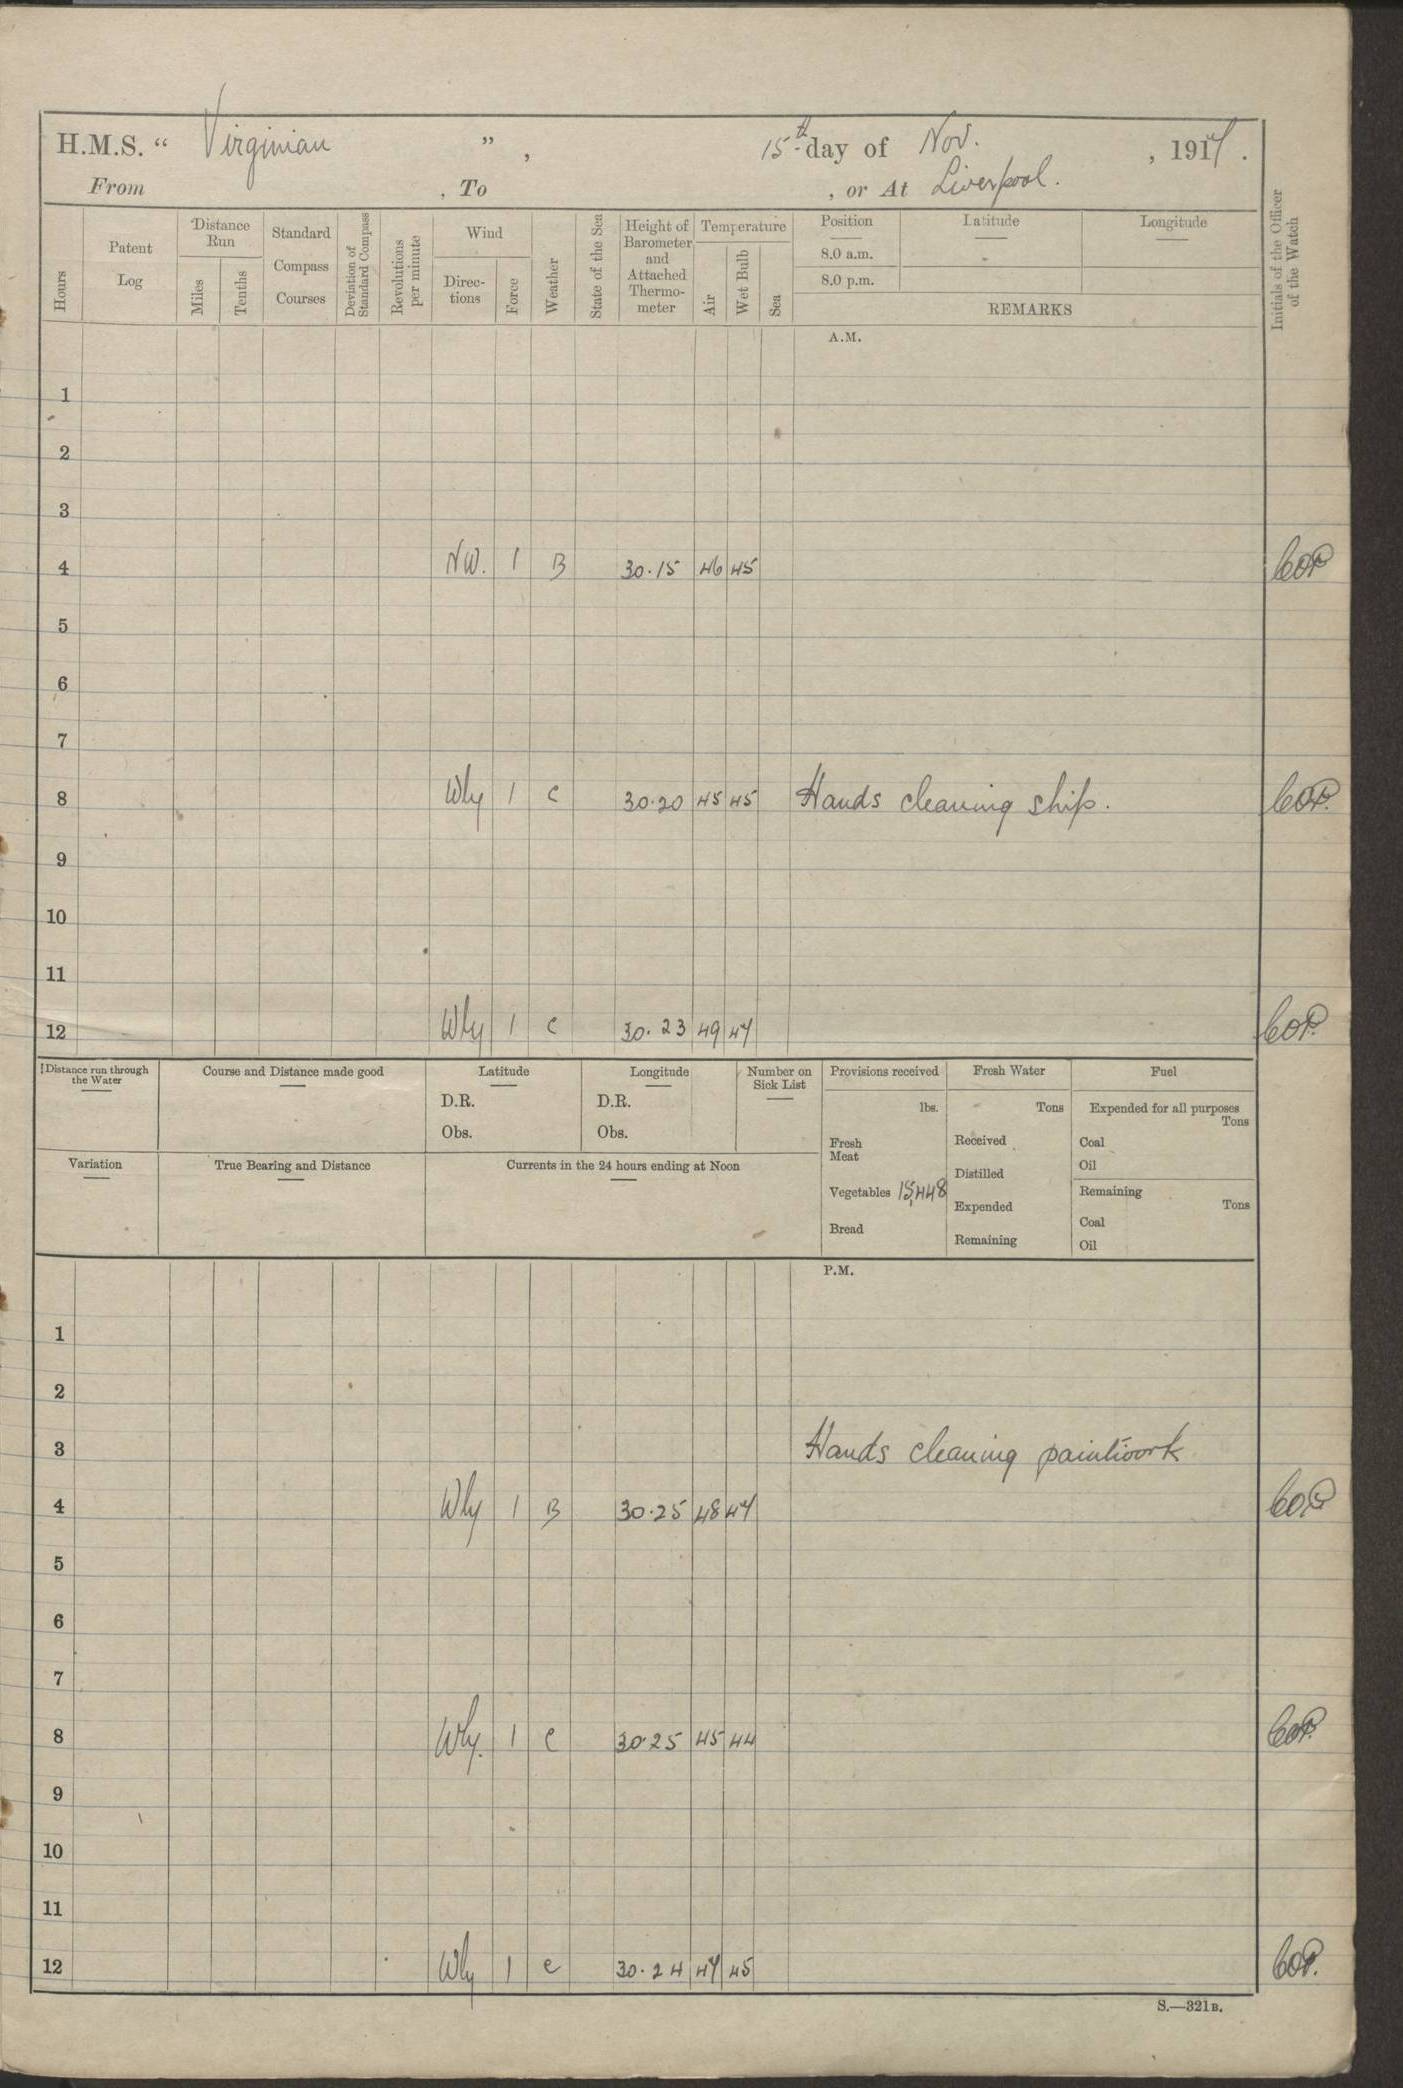 H.M.S. " Virginian " , 15th day of Nov. , 1917 .
From , To , or At Liverpool.
Hours
Patent Log
Distance Run
Miles
Tenths
Standard Compass Courses
Deviation of Standard Compass
Revolutions per minute
Wind
Direc-tions
Force
Weather
State of the Sea
Height of Barometer and Attached Thermo-meter
Temperature
Air
Wet Bulb
Sea
Position
8.0 a.m.
8.0 p.m.
Latitude
Longitude
REMARKS
Initials of the Officer of the Watch
A.M.
1
2
3
4 NW. 1 B 30.15 46 45
5
6
7
8 Wly 1 c 30.20 45 45 Hands cleaning ship.
9
10
11
12 Wly 1 c 30.23 49 47
Distance run through the Water
Course and Distance made good
Latitude
D.R.
Obs.
Longitude
D.R.
Obs.
Number on Sick List
Provisions received
lbs.
Fresh Meat
Vegetables 15,448
Bread
Fresh Water
Tons
Received
Distilled
Expended
Remaining
Fuel
Expended for all purposes
Tons
Coal
Oil
Remaining
Tons
Coal
Oil
Variation
True Bearing and Distance
Currents in the 24 hours ending at Noon
P.M.
1
2
3 Hands cleaning paintwork
4 Wly 1 B 30.25 48 47
5
6
7
8 Wly. 1 c 30.25 45 44
9
10
11
12 Wly 1 c 30.24 47 45
S.—321B.